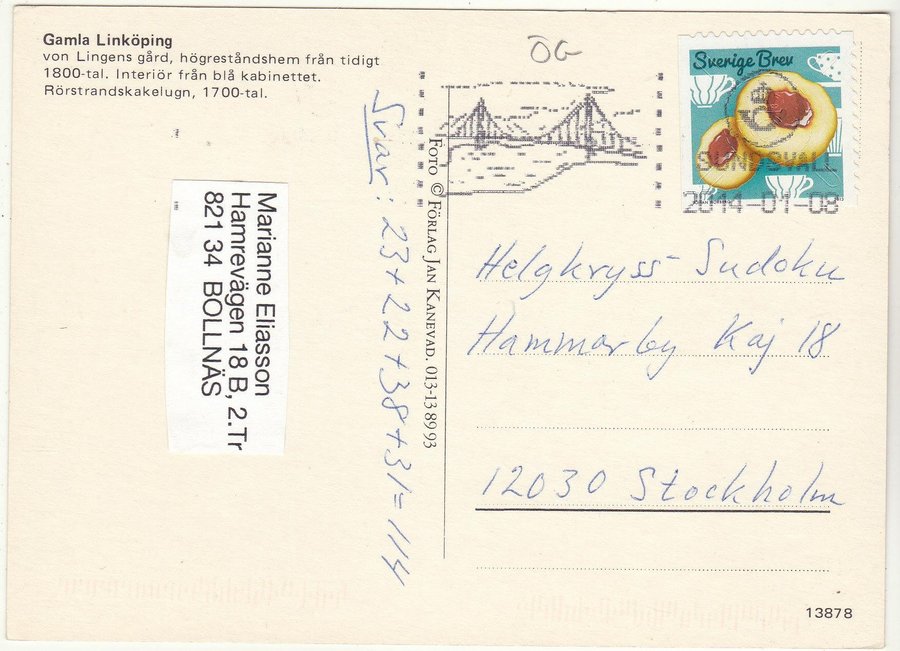 Gamla Linköping
von Lingens gård, högreståndshem från tidigt
1800-tal. Interiör från blå kabinettet.
Rörstrandskakelugn, 1700-tal.
ÖG
Sverige Brev
SUNDSVALL
2014-01-08
Marianne Eliasson
Hamrevägen 18 B, 2.Tr
821 34 BOLLNÄS
Svar: 23+22+38+31=114
FOTO © FÖRLAG JAN KANEVAD. 013-13 89 93
Helgkryss-Sudoku
Hammarby Kaj 18
12030 Stockholm
13878